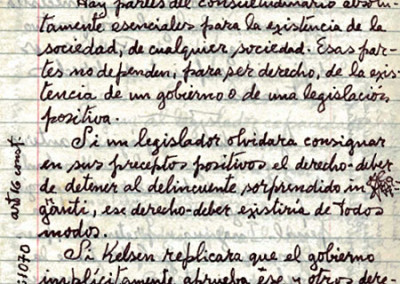 Hay partes del consuetudinario absolu-
tamente esenciales para la existencia de la
sociedad, de cualquier sociedad. Esas par-
tes no dependen, para ser derecho, de la exis-
tencia de un gobierno o de una legislación
positiva.
Si un legislador olvidara consignar
en sus preceptos positivos el derecho-deber
de detener al delincuente sorprendido in
ganti, ese derecho-deber existiría de todos
modos.
Si Kelsen replicara que el gobierno
implícitamente aprueba ése y otros dere-
art 16 const.
1070